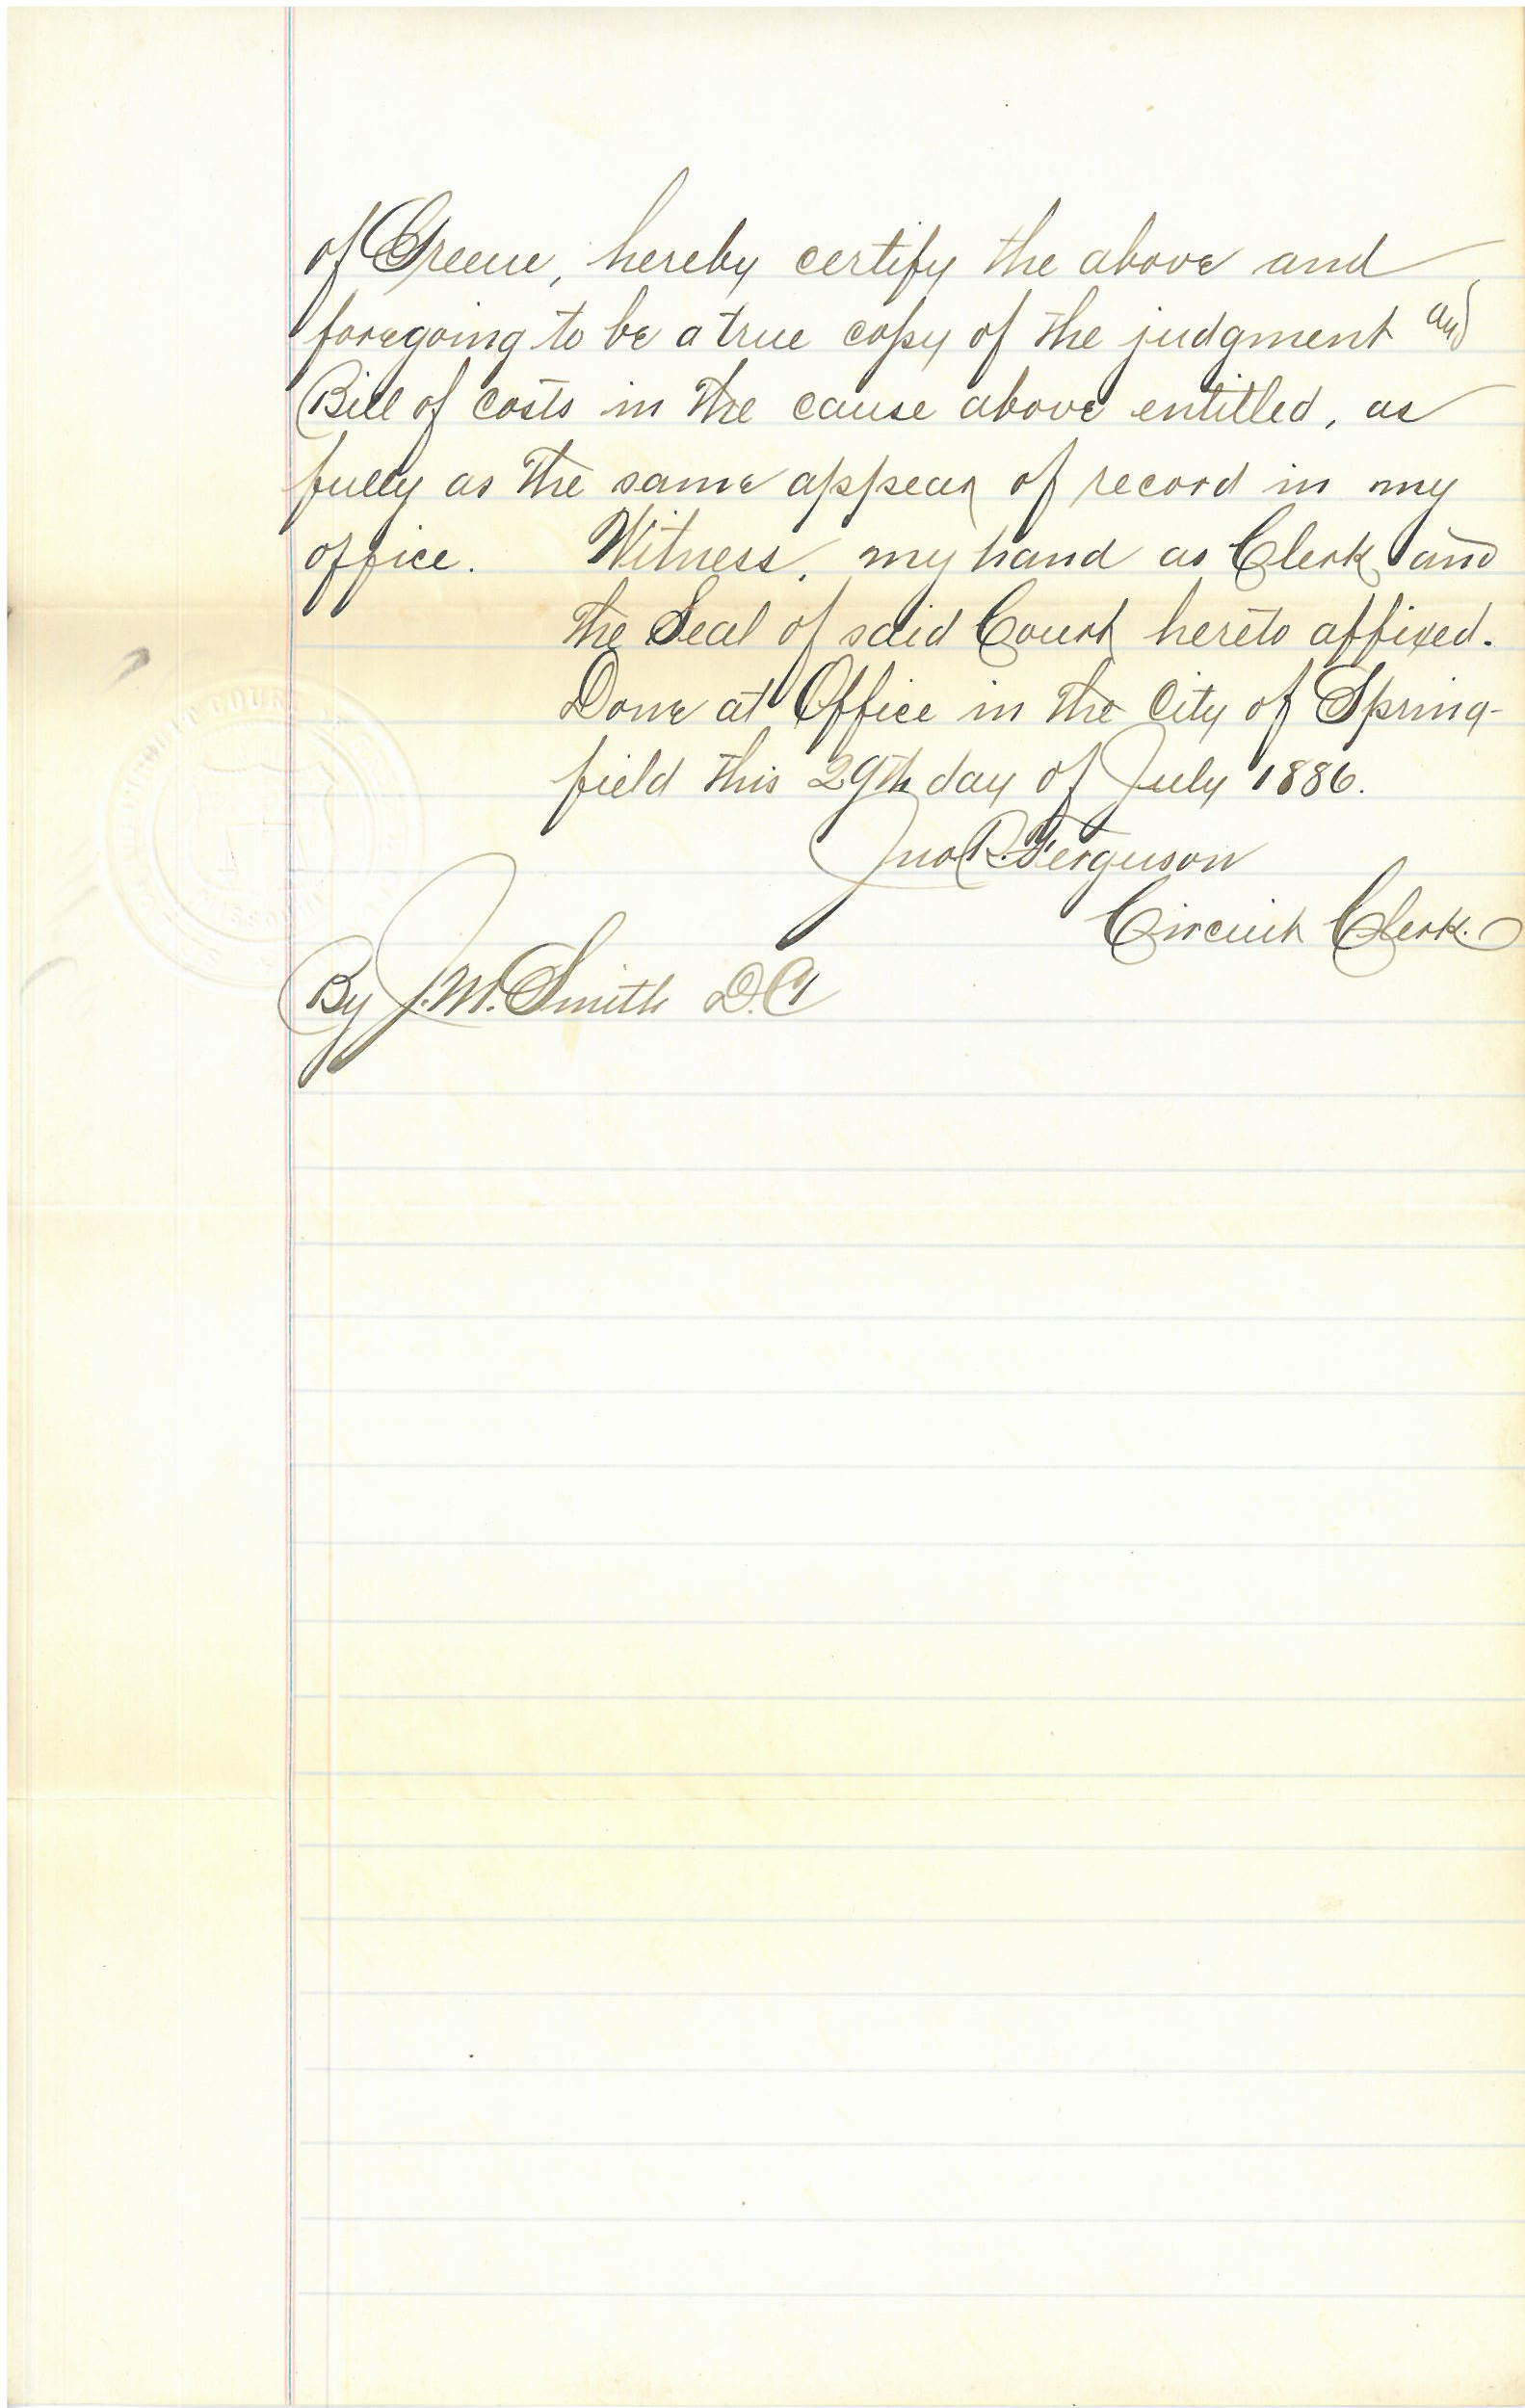 of Greene, hereby certify the above and
foregoing to be a true copy of the judgment and
Bill of costs in the cause above entitled, as
fully as the same appear of record in my
office. Witness, my hand as Clerk and
the Seal of said Court hereto affixed.
Done at Office in the City of Spring-
field this 29th day of July 1886.
Jno R. Ferguson
Circuit Clerk.
By J. M. Smith D.C.
CIRCUIT COURT
MISSOURI